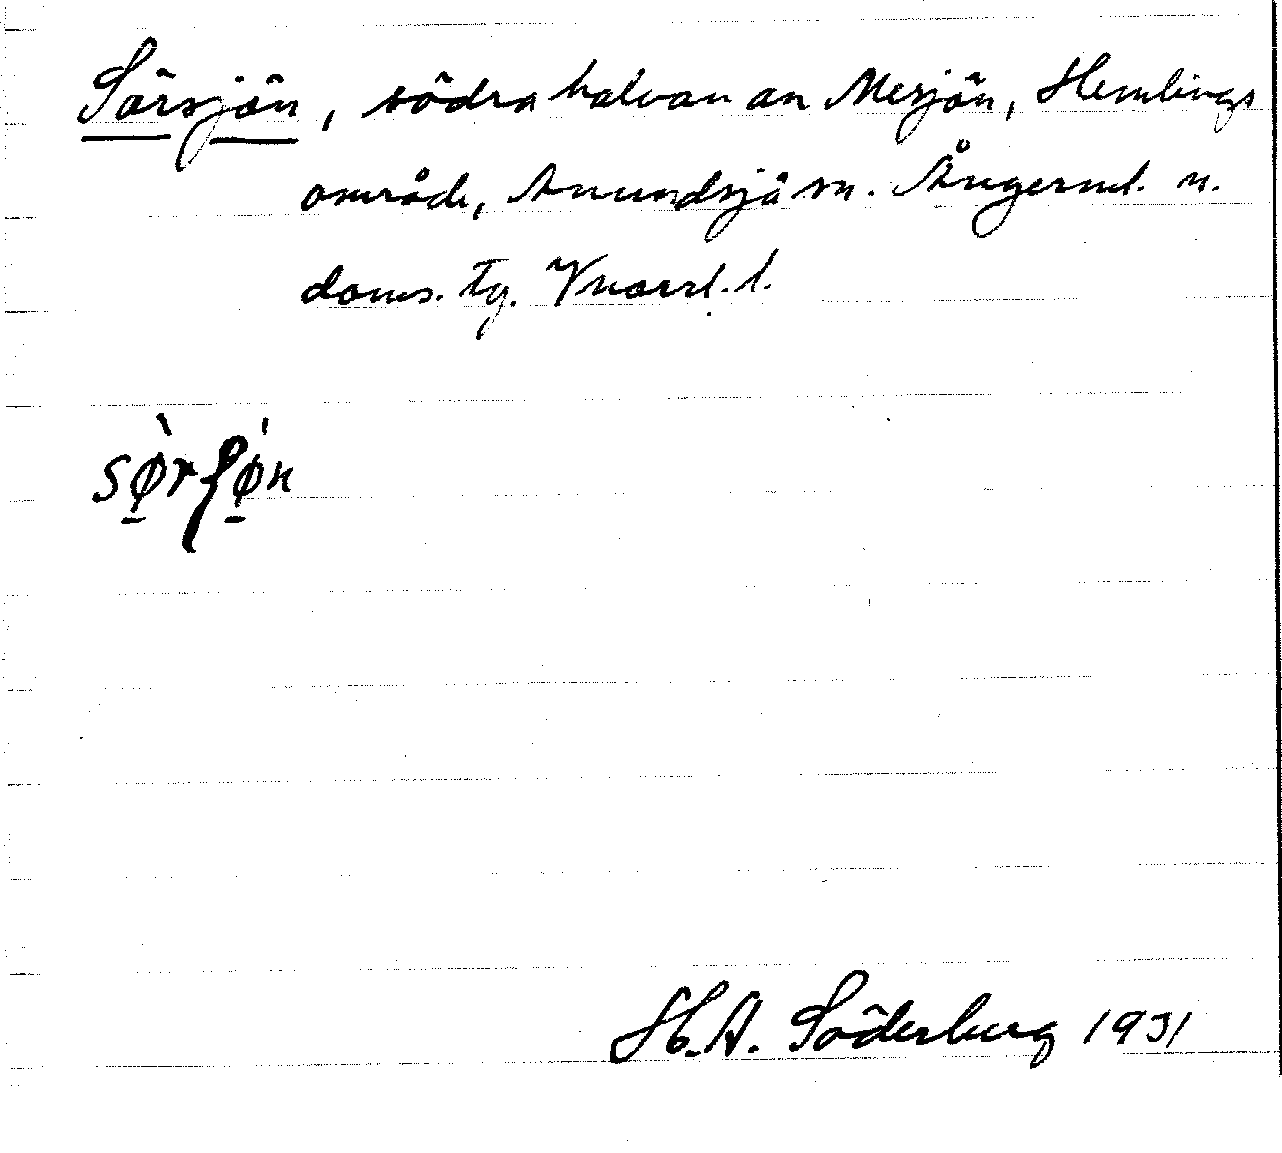 Sörsjön, södra halvan av Mesjön, Hemlings
område, Anundsjö sn. Ångerml. n.
doms. tg. Västernl. l.
sø̀rʃø̀n
H. A. Söderberg 1931